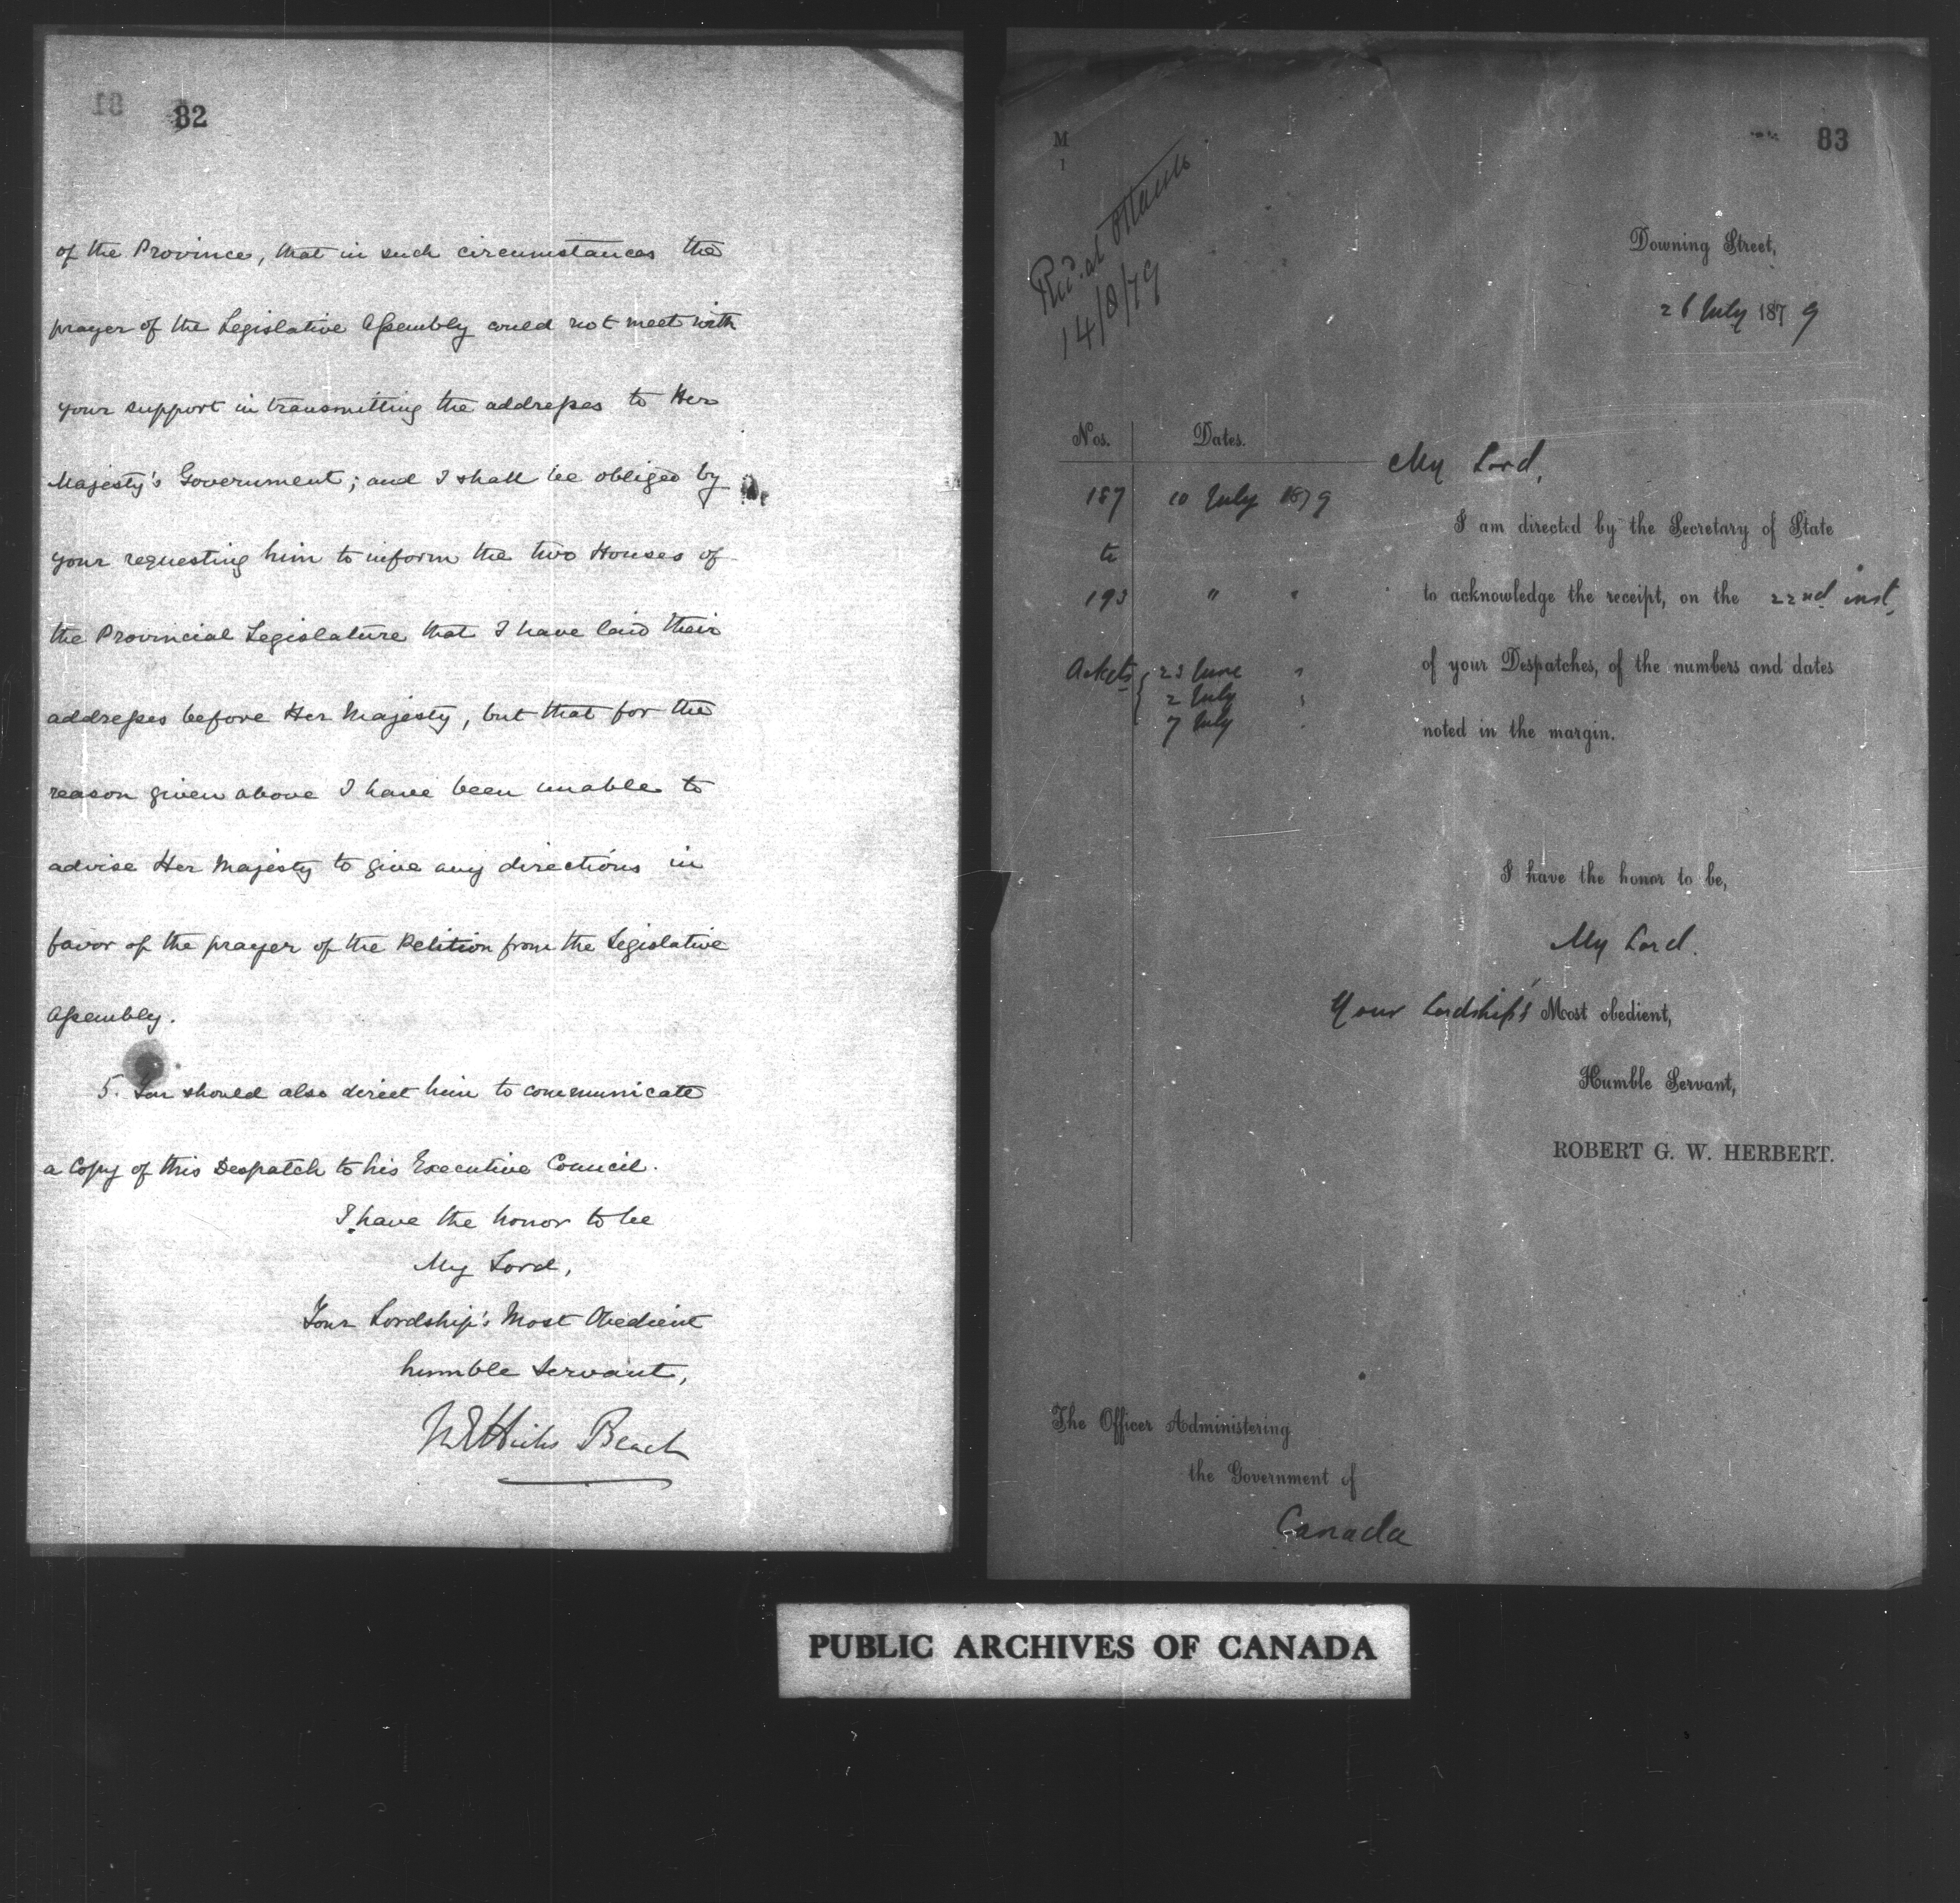 82
of the Province, that in such circumstances the
prayer of the Legislative Assembly could not meet with
your support in transmitting the addresses to Her
Majesty's Government; and I shall be obliged by
your requesting him to inform the two Houses of
the Provincial Legislature that I have laid their
addresses before Her Majesty, but that for the
reason given above I have been unable to
advise Her Majesty to give any directions in
favor of the prayer of the Petition from the Legislative
Assembly.
5. You should also direct him to communicate
a Copy of this Despatch to his Executive Council.
I have the honor to be
My Lord,
Your Lordship's Most Obedient
humble Servant,
M E Hicks Beach
M
1
83
Recd. at Ottawa
14/8/79
Downing Street,
26 July 1879
Nos. Dates.
187 10 July 1879
to
193 " "
Ackts 23 June "
2 July "
7 July "
My Lord,
I am directed by the Secretary of State
to acknowledge the receipt, on the 22nd inst.
of your Despatches, of the numbers and dates
noted in the margin.
I have the honor to be,
My Lord.
Your Lordship's Most obedient,
Humble Servant,
ROBERT G. W. HERBERT.
The Officer Administering
the Government of
Canada
PUBLIC ARCHIVES OF CANADA